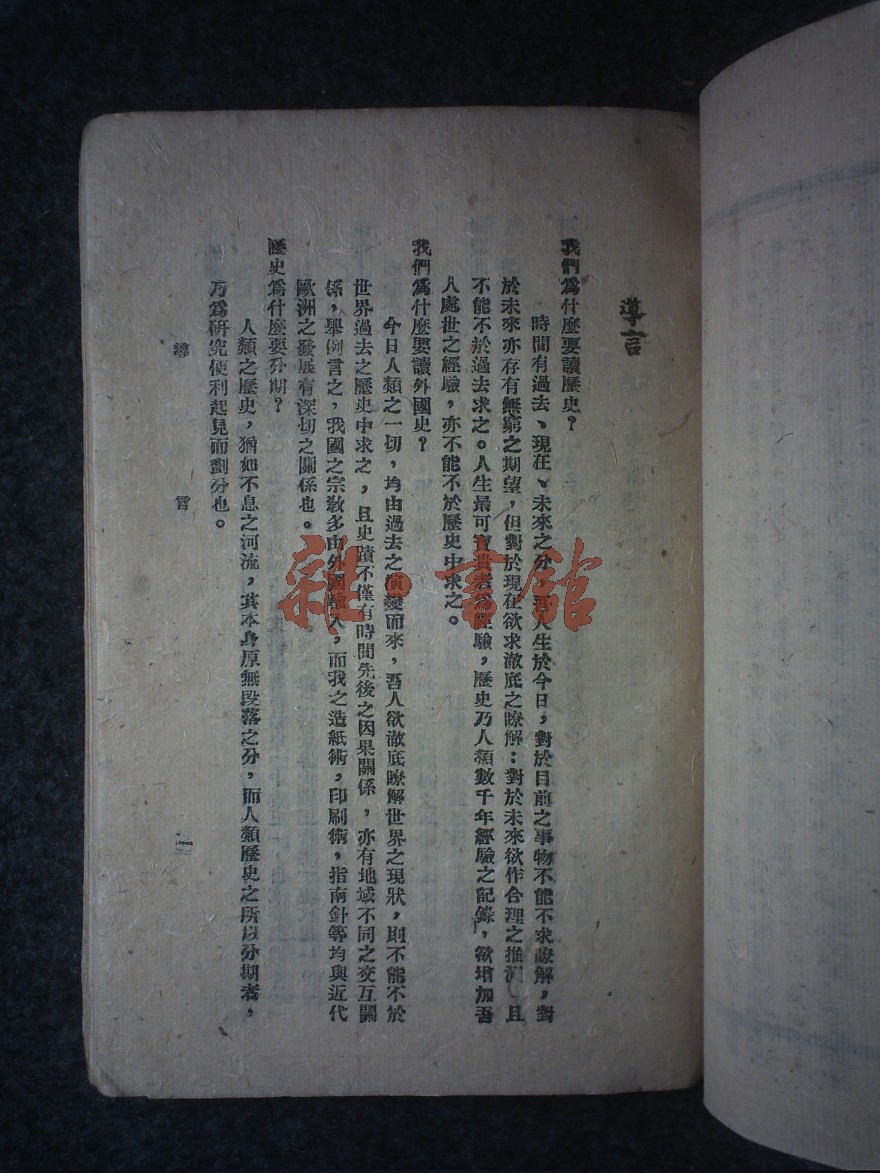 導言
我們爲什麼要讀歷史？
時間有過去、現在、未來之分，吾人生於今日，對於目前之事物不能不求瞭解，對
於未來亦存有無窮之期望，但對於現在欲求澈底之瞭解：對於未來欲作合理之推測，且
不能不於過去求之。人生最可寶貴者爲經驗，歷史乃人類數千年經驗之記錄，欲增加吾
人處世之經驗，亦不能不於歷史中求之。
我們爲什麼要讀外國史？
今日人類之一切，均由過去之演變而來，吾人欲澈底瞭解世界之現狀，則不能不於
世界過去之歷史中求之，且史蹟不僅有時間先後之因果關係，亦有地域不同之交互關
係，舉例言之，我國之宗敎多由外國輸入，而我之造紙術，印刷術，指南針等均與近代
歐洲之發展有深切之關係也。
歷史爲什麼要分期？
人類之歷史，猶如不息之河流，其本身原無段落之分，而人類歷史之所以分期者，
乃爲研究便利起見而劃分也。
導言
一
雜·書館